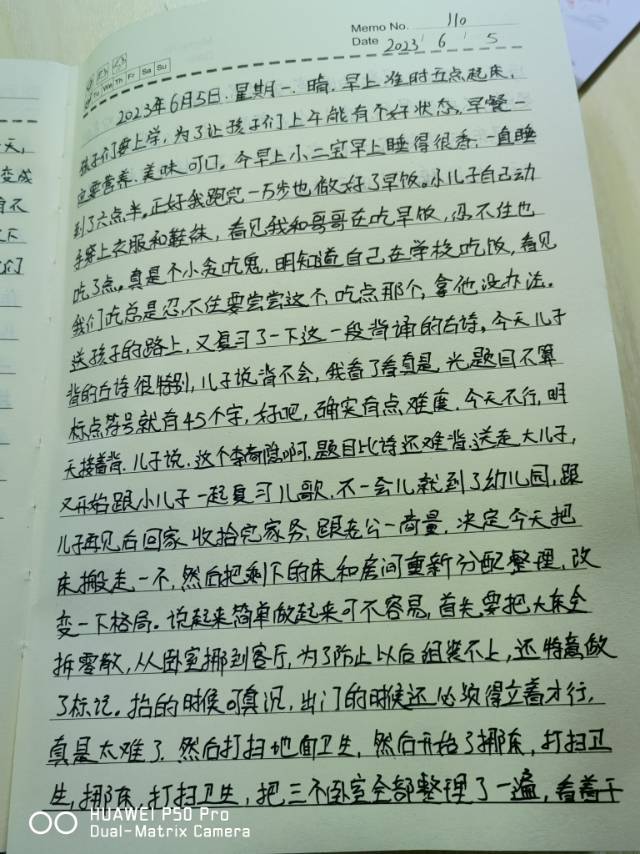 Memo No. 110
Date 2023 / 6 / 5
Tu We Th Fr Sa Su
2023年6月5日.星期一.晴.早上准时五点起床,
孩子们要上学,为了让孩子们上午能有个好状态,早餐一
定要营养、美味可口。今早上小二宝早上睡得很香,一直睡
到了六点半。正好我跑完一万步也做好了早饭。小儿子自己动
手穿上衣服和鞋袜,看见我和哥哥在吃早饭,忍不住也
吃了点。真是个小贪吃鬼,明知道自己在学校吃饭,看见
我们吃总是忍不住要尝尝这个,吃点那个,拿他没办法。
送孩子的路上,又复习了一下这一段背诵的古诗。今天儿子
背的古诗很特别,儿子说背不会,我看了看真是,光题目不算
标点符号就有45个字,好吧,确实有点难度.今天不行,明
天接着背.儿子说.这个李商隐啊.题目比诗还难背.送走大儿子,
又开始跟小儿子一起复习儿歌.不一会儿就到了幼儿园,跟
儿子再见后回家.收拾完家务,跟老公一商量,决定今天把
床搬走一个,然后把剩下的床和房间重新分配整理,改
变一下格局。说起来简单做起来可不容易,首先要把大床全
拆零散,从卧室挪到客厅,为了防止以后组装不上,还特意做
了标记。抬的时候可真沉,出门的时候还必须得立着才行,
真是太难了.然后打扫地面卫生,然后开始了挪床,打扫卫
生,挪床,打扫卫生,把三个卧室全部整理了一遍,看着干
天,
变成
下
们
HUAWEI P50 Pro
Dual-Matrix Camera